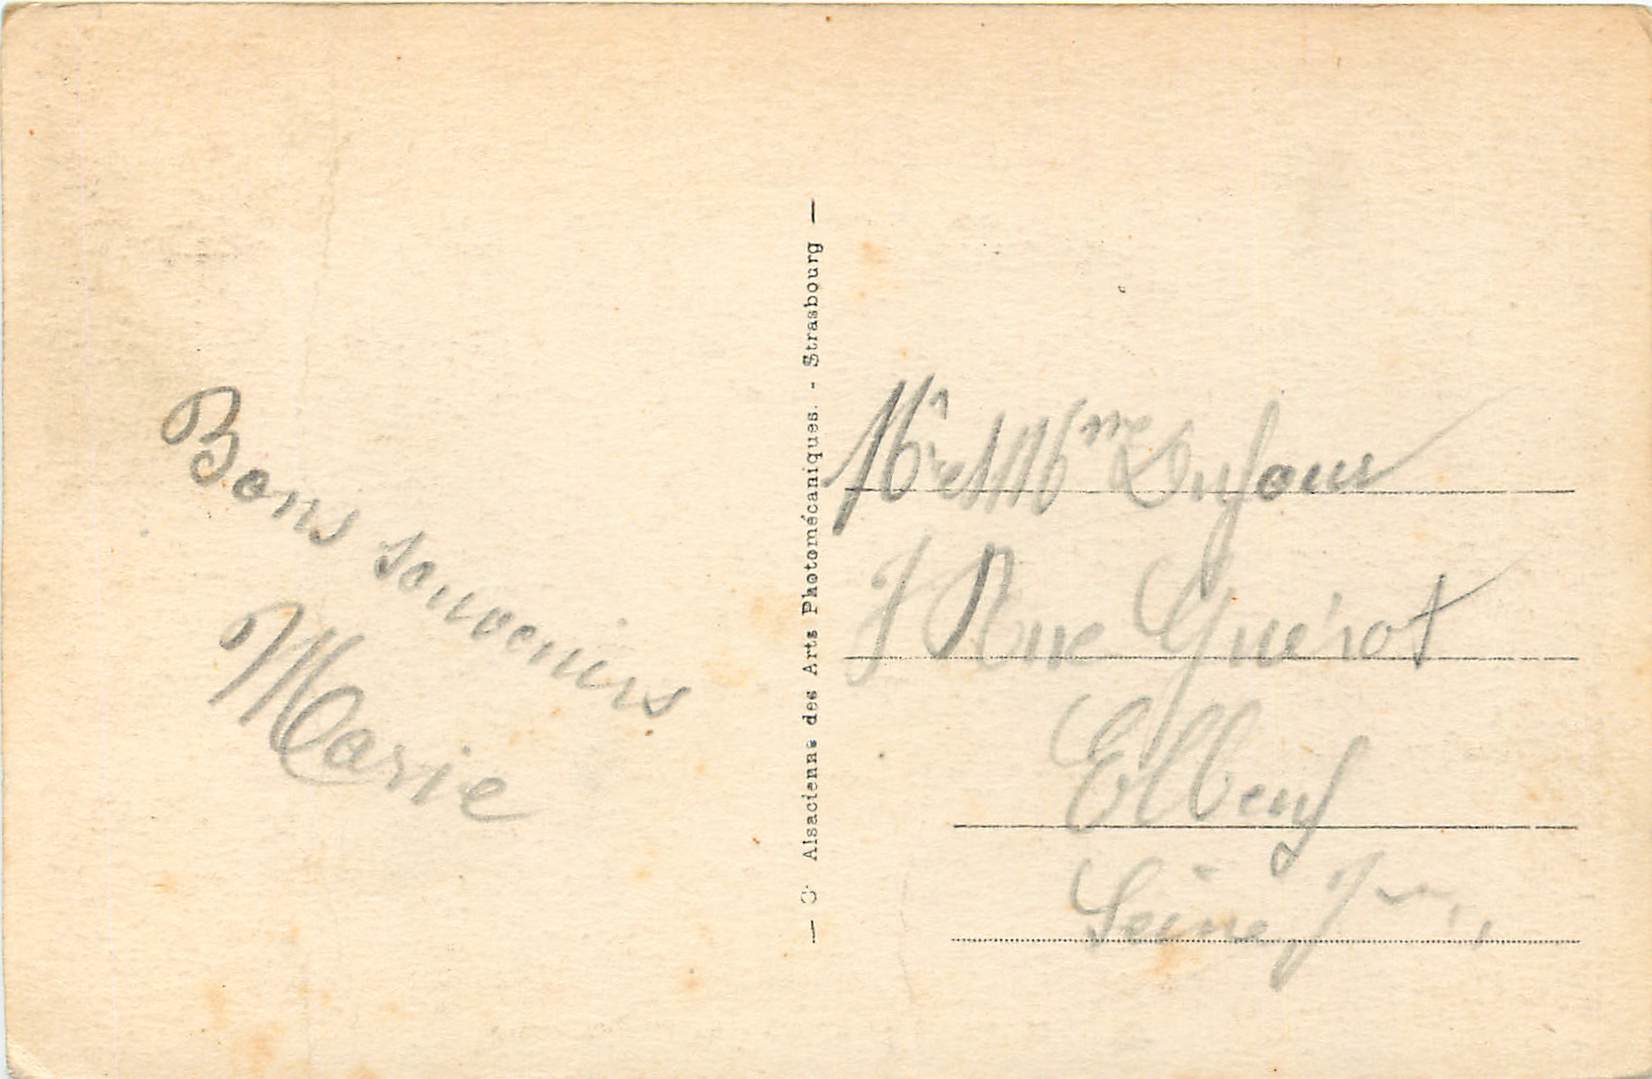 Bons souvenirs
Marie
— Cie Alsacienne des Arts Photomécaniques. - Strasbourg —
Mr et Mme Dufour
7 Rue Guérot
Elbeuf
Seine Infre